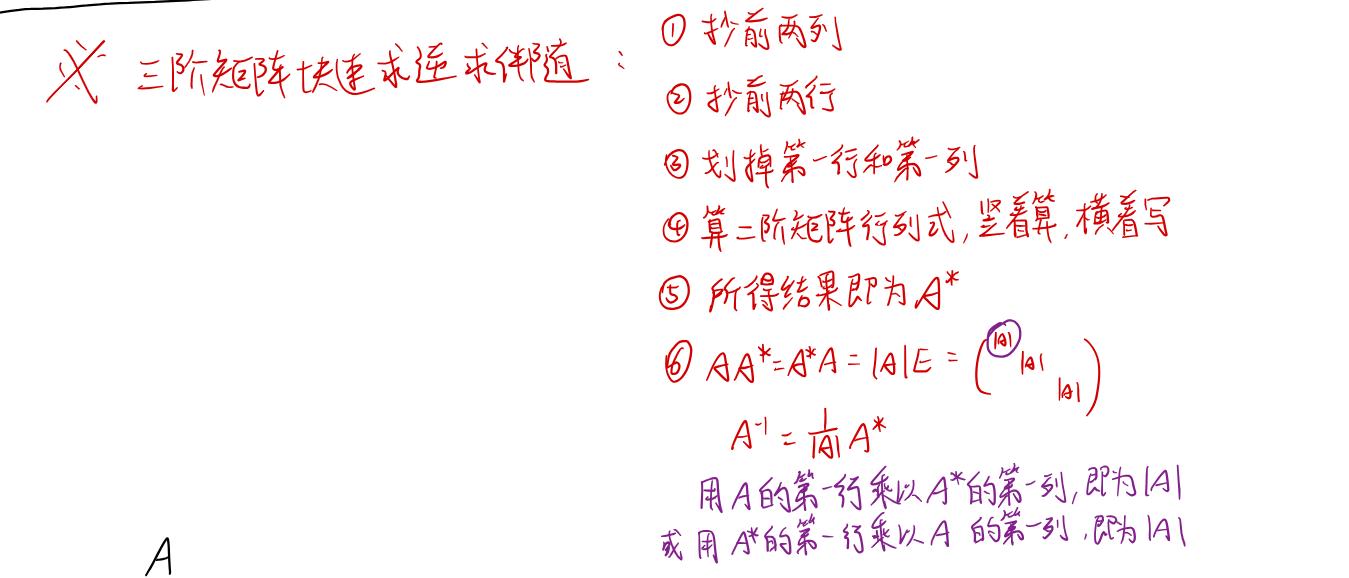 ※ 三阶矩阵快速求逆求伴随：
① 抄前两列
② 抄前两行
③ 划掉第一行和第一列
④ 算二阶矩阵行列式,竖着算,横着写
⑤ 所得结果即为A*
⑥ AA*=A*A=|A|E=(|A| |A| |A|)
A⁻¹=1/|A| A*
用A的第一行乘以A*的第一列,即为|A|
或用A*的第一行乘以A的第一列,即为|A|
A